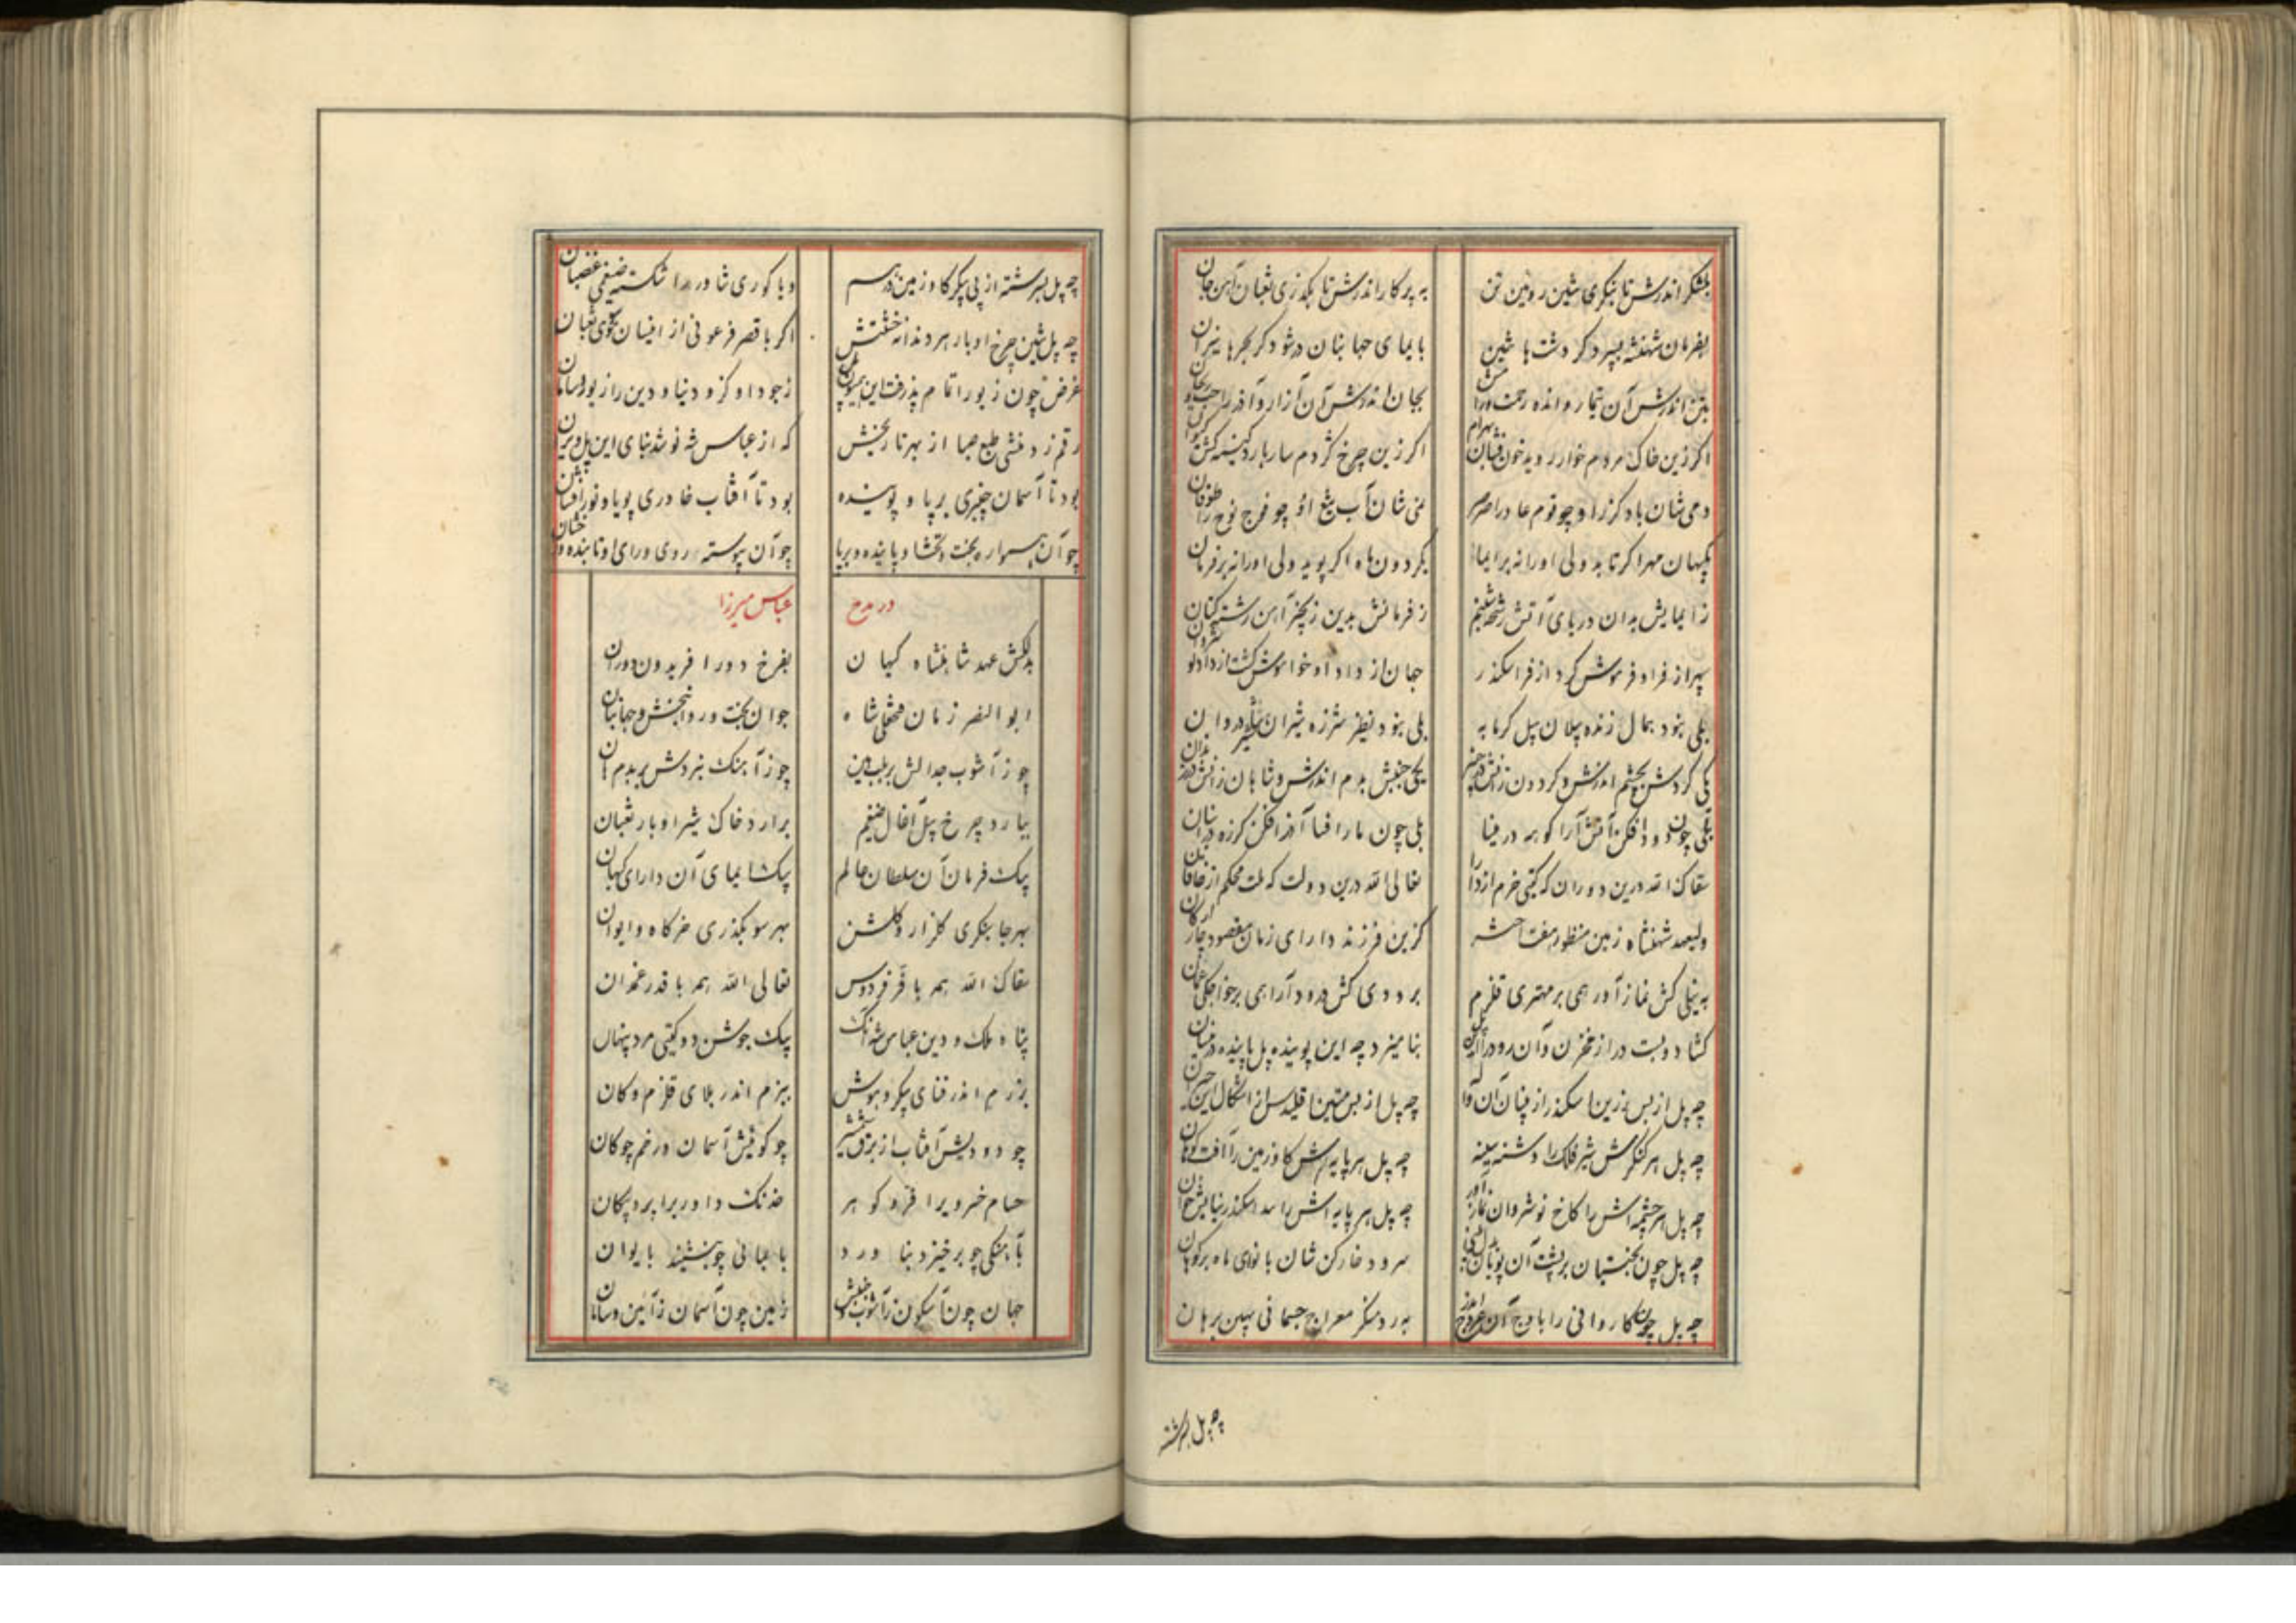 بلشکر اندرش تا بنگری شین روئین تن
به پرکار اندرش تا بگذری ثعبان آهن جان
بفرمان شهنشه بسپرد گر دشت با شین
با یمای جهانبان در شود گر بحر با نیران
بتن اندرش آن تیمار و انده رحمت
بجان اندرش آن آزار و آذر راحت
اگر زین خاک مردم خوار روید خون فشان بهرام
اگر زین چرخ گژدم سار بارد کینه کش کیوان
دمی شان باد گرز او چو قوم عاد را صرصر
نمی شان آب تیغ او چو فوج نوح را طوفان
بگیهان مهر اگر تابد ولی او را نه بر ایما
بگردون ماه اگر پوید ولی او را نه بر فرمان
ز ایمایش بدان دریای آتش رشحه شبنم
ز فرمانش بدین زنجیر آهن رشته کتان
سپهر از فر او فرموش کرد از فر اسکندر
جهان از داد او خواموش گشت از داد نوشروان
بلی نبود بمال زنده پیلان پیل گرمابه
بلی نبود نظیر شرزه شیران شیر شادروان
یکی گردش بچشم اندرش و گردون زانش در چنبر
یکی جنبش بدم اندرش و شاهان زانش در زندان
بلی چون دود افکن آتش آرا کوهه در مینا
بلی چون مار افسا آذر افکن گرزه در انبان
سقاک الله درین دوران که گیتی خرم از دارا
تعالی الله درین دولت که ملت محکم از خاقان
ولیعهد شهنشاه زمین منظور هفت اختر
گزین فرزند دارای زمان مقصود چار ارکان
به نیلی کش نماز آور همی بر مهتری قلزم
برودی کش درود آرا همی بر خواجگی عمان
گشاد و بست در از مخزن و آن رود را
بنامیزد چه این پوینده پل پاینده در بنیان
چه پل از بس رزین اسکندر از بنیان آن آوا
چه پل از بس متین اقلیدس از اشکال این حیران
چه پل هر کنگرش شیر فلک را دشنه سینه
چه پل هر پایه اش گاو زمین را آفت کوهان
چه پل هر چشمه اش را کاخ نوشروان نماز آور
چه پل هر پایه اش را سد اسکندر نیایش خوان
چه پل چون بختیان بر پشت آن پویان
سرود خارکن شان با نوای ماه بر کوهان
چه پل چون کاروانی را باوج آن عروج اندر
به رد منکر معراج جسمانی بهین برهان
چه پل بسرشته
چه پل بسرشته از پی پیکر گاو زمین در سم
و یا کوری شادروان شکسته ضیغمی غضبان
چه پل شین چرخ اوبار هر دندانه خشتش
اگر با قصر فرعونی از افسان گوی ثعبان
غرض چون زیور اتمام پذرفت این همیون پل
ز جود او کز و دنیا و دین را زیور و سامان
رقم زد منشی طبع صبا از بهر تاریخش
که از عباس شه نو شد بنای این پل ویران
بود تا آسمان چنبری برپا و پوینده
بود تا آفتاب خاوری پویا و نورافشان
چو آن همواره بخت دلگشا و پاینده و برپا
چو آن پیوسته روی و رای او تابنده و رخشان
در مدح
عباس میرزا
بدلکش عهد شاهنشاه گیهان
بفرخ دور افریدون دوران
ابوالنصر زمان فتحعلی شاه
جوان بخت و روان بخش و جهانبان
چو ز آشوب جدالش بر بلب هین
چو ز آهنگ نبردش بر بدم هان
بیارد چرخ پیل آغال ضیغم
برارد خاک شیر اوبار ثعبان
بیک فرمان آن سلطان عالم
بیک ایمای آن دارای گیهان
بهر جا بنگری گلزار و گلشن
بهر سو بگذری خرگاه و ایوان
سقاک الله همه با فر فردوس
تعالی الله همه با قدر غمدان
پناه ملک و دین عباس شه آنک
بیک جوشن دو گیتی مرد پنهان
برزم اندر فنای پیکر و هوش
ببزم اندر بلای قلزم و کان
چو دودیش آفتاب از برق شمشیر
چو گوئیش آسمان در خم چوگان
حسام خسرویرا فرو گوهر
خدنگ داوریرا پر و پیکان
بآهنگی چو برخیزد بناورد
بایمائی چو بنشیند بایوان
جهان چون آسگون ز آشوب و جنبش
زمین چون آسمان ز آئین و سامان